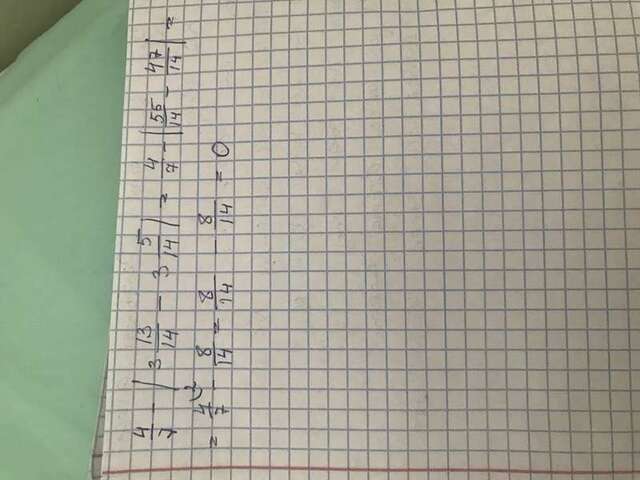 4/7 - |3 13/14 - 3 5/14| = 4/7 - |55/14 - 47/14| =
= 4/7 ² - 8/14 = 8/14 - 8/14 = 0